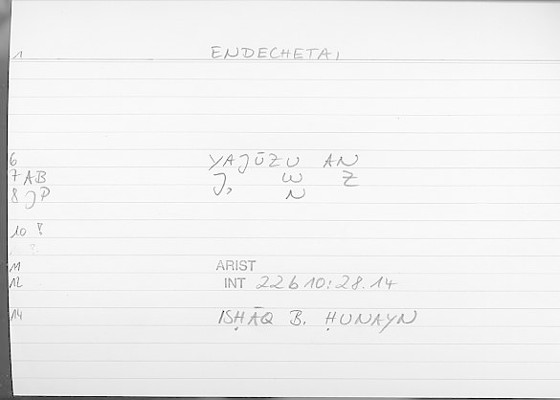 1 ENDECHETAI
6 YAJŪZU AN
7 AB J, W Z
8 JP N
10 ?
?
11 ARIST
12 INT 22b10:28.14
14 ISḤĀQ B. ḤUNAYN